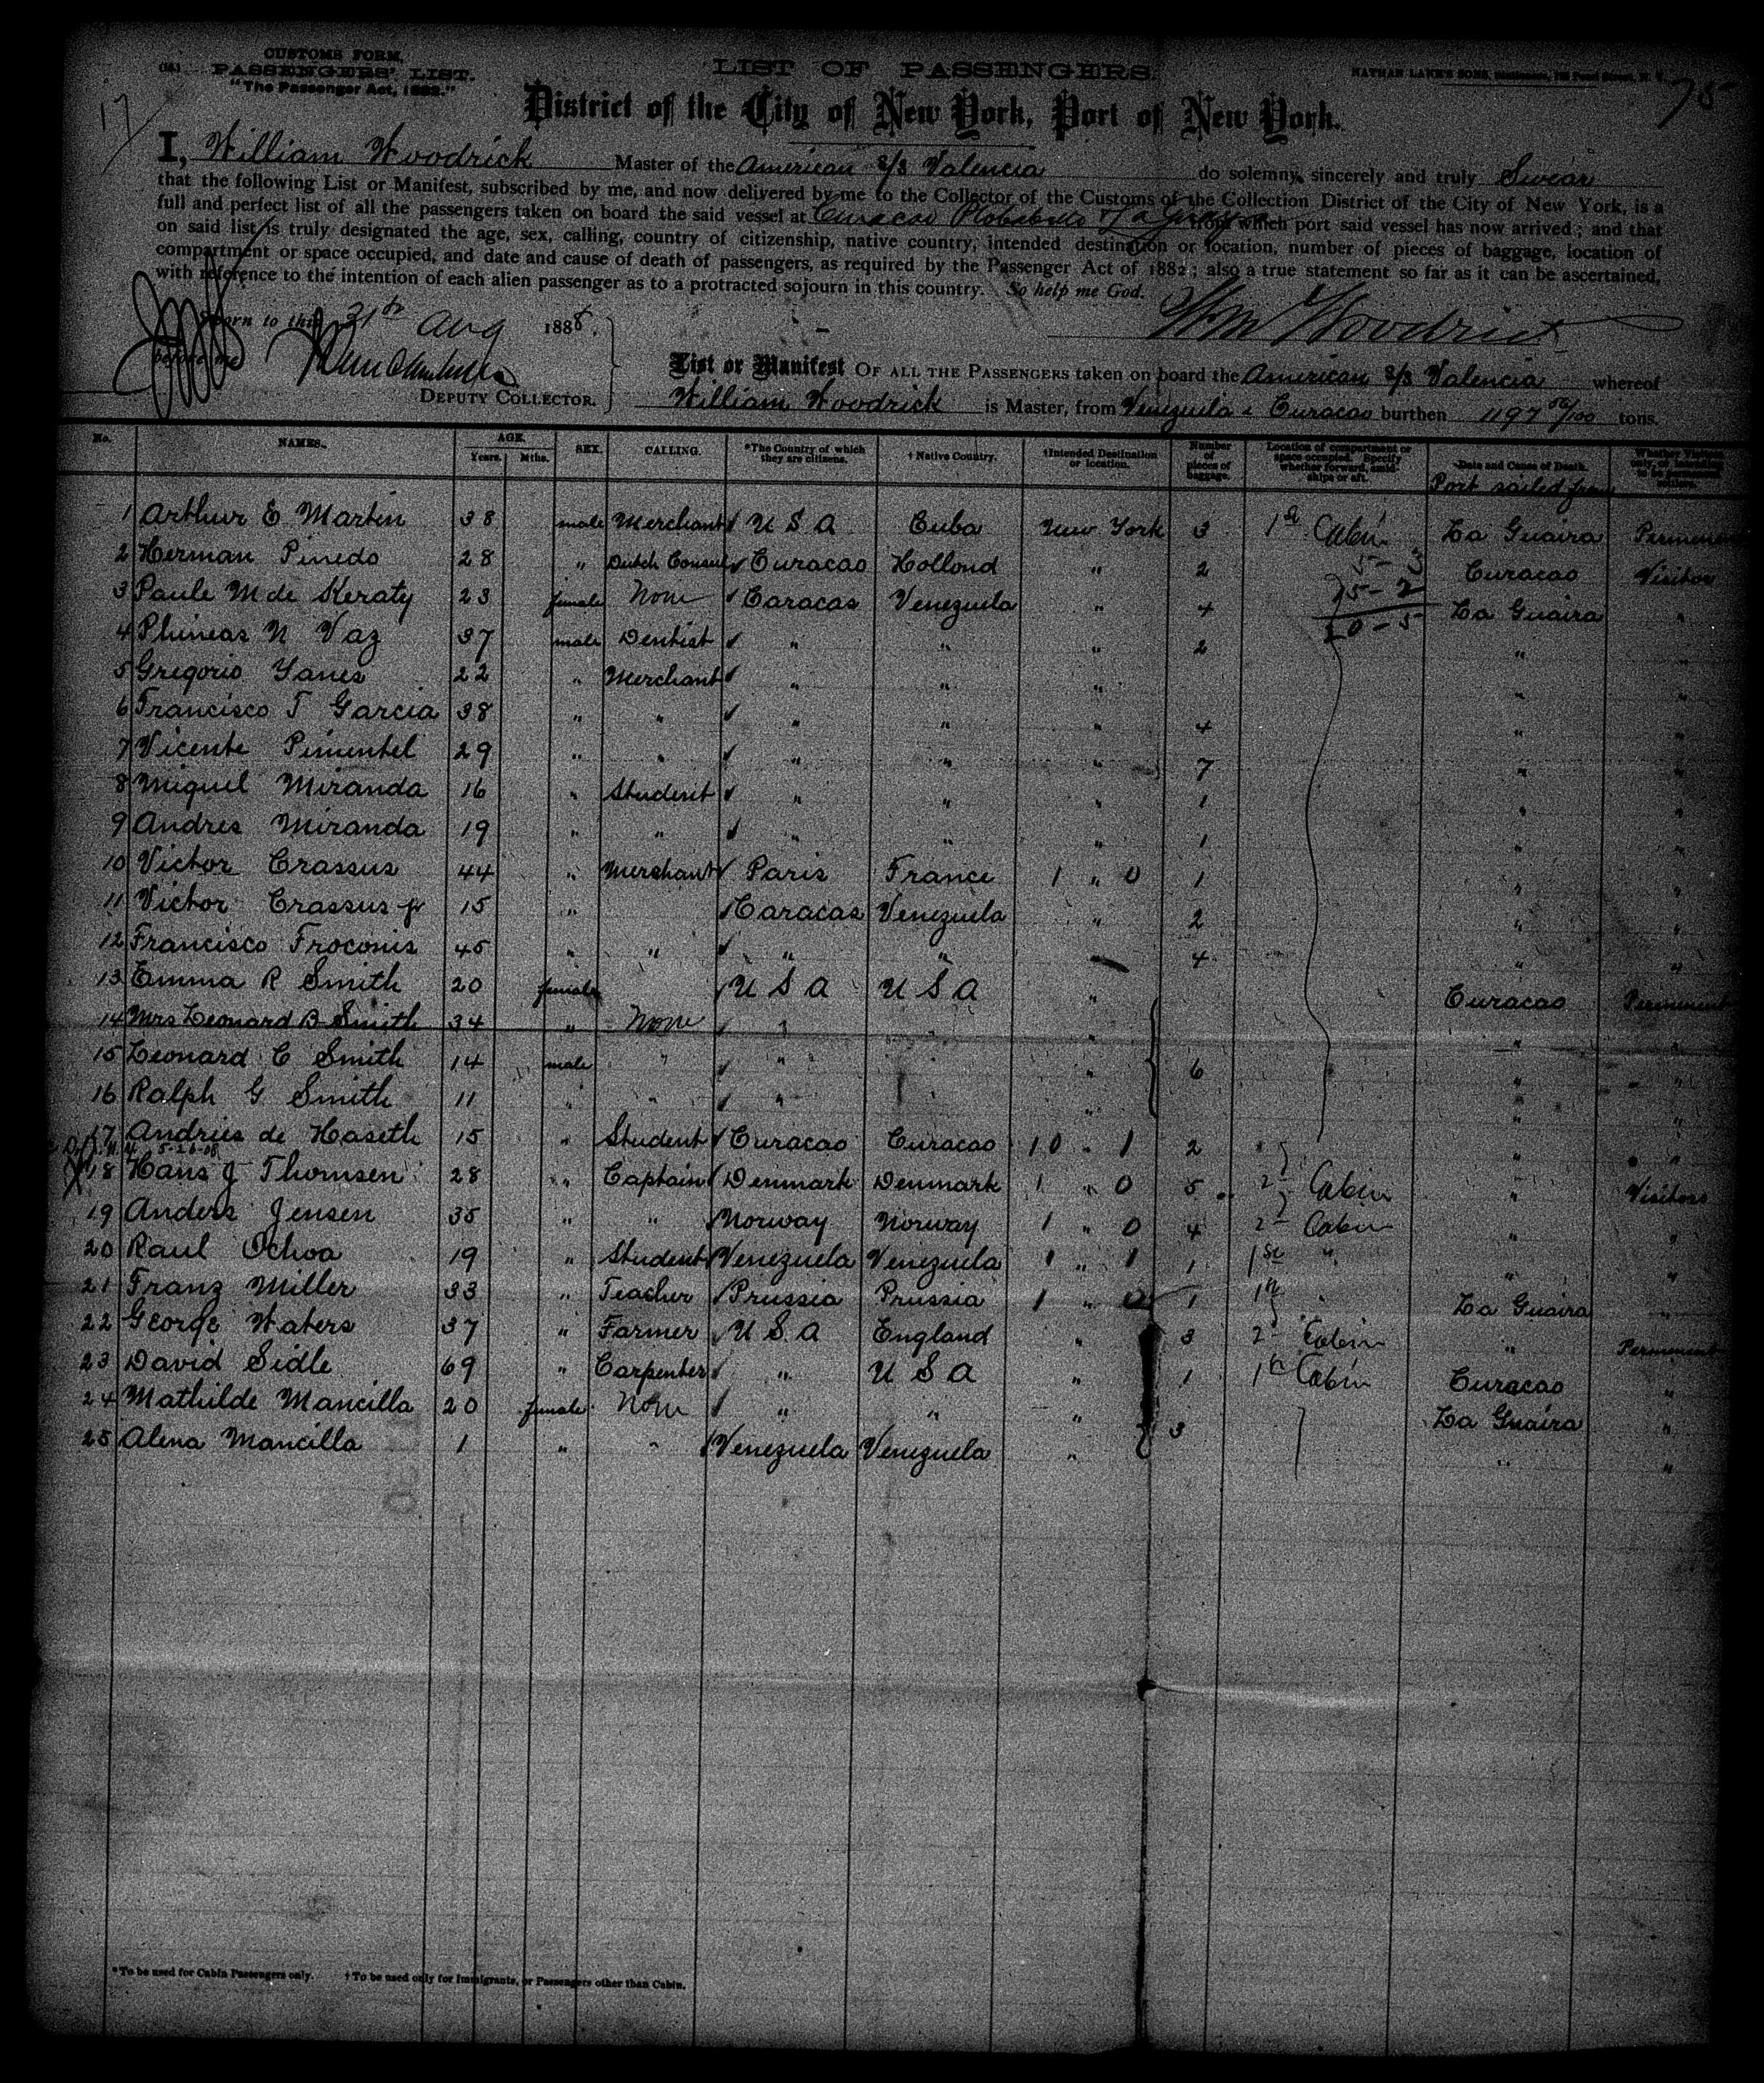 (18.) CUSTOMS FORM.
PASSENGERS' LIST.
"The Passenger Act, 1882."
LIST OF PASSENGERS.
NATHAN LANE'S SONS, Stationers, Pearl Street, N. Y.
75
17
District of the City of New York, Port of New York.
I, William Woodrick Master of the American S/S Valencia do solemny, sincerely and truly Swear
that the following List or Manifest, subscribed by me, and now delivered by me to the Collector of the Customs of the Collection District of the City of New York, is a
full and perfect list of all the passengers taken on board the said vessel at Curacao & La Guayra from which port said vessel has now arrived; and that
on said list is truly designated the age, sex, calling, country of citizenship, native country, intended destination or location, number of pieces of baggage, location of
compartment or space occupied, and date and cause of death of passengers, as required by the Passenger Act of 1882; also a true statement so far as it can be ascertained,
with reference to the intention of each alien passenger as to a protracted sojourn in this country. So help me God.
Sworn to this 31st Aug 1888.
Wm Woodrick
before me
DEPUTY COLLECTOR.
List or Manifest OF ALL THE PASSENGERS taken on board the American S/S Valencia whereof
William Woodrick is Master, from Venezuela & Curacao burthen 1197 56/100 tons.
No. NAMES. AGE. Years. Mths. SEX. CALLING. *The Country of which they are citizens. †Native Country. †Intended Destination or location. Number of pieces of baggage. Location of compartment or space occupied. Specify whether forward, amidships or aft. Date and Cause of Death.
Port sailed from
1 Arthur E Martin 38 male Merchant U S A Cuba New York 3 1st Cabin La Guaira Permenent
2 Herman Pinedo 28 " Dutch Consul Curacao Hollond " 2 Curacao Visitor
3 Paule M de Keraty 23 female None Caracas Venezuela " 4 La Guaira "
4 Phineas N Vaz 37 male Dentist " " " 2 " "
5 Gregorio Yanes 22 " Merchant " " " " "
6 Francisco T Garcia 38 " " " " " 4 " "
7 Vicente Pimentel 29 " " " " " 7 " "
8 Miguel Miranda 16 " Student " " " 1 " "
9 Andres Miranda 19 " " " " " 1 " "
10 Victor Crassus 44 " Merchant Paris France 1 " 0 1 " "
11 Victor Crassus jr 15 " Caracas Venezuela " 2 " "
12 Francisco Troconis 45 " " " " 4 " "
13 Emma R Smith 20 female U S A U S A " Curacao Permenent
14 Mrs Leonard B Smith 34 " None " " " " "
15 Leonard C Smith 14 male " " " " 6 " "
16 Ralph G Smith 11 " " " " " " "
17 Andries de Haseth 15 " Student Curacao Curacao 10 " 1 2 " "
5-26-08
18 Hans J Thomsen 28 " Captain Denmark Denmark 1 " 0 5 2 Cabin " Visitors
19 Anders Jensen 35 " " Norway Norway 1 " 0 4 2 Cabin " "
20 Raul Ochoa 19 " Student Venezuela Venezuela 1 " 1 1 1st " " "
21 Franz Miller 33 " Teacher Prussia Prussia 1 " 0 1 1st " La Guaira "
22 George Waters 37 " Farmer U S A England " 3 2 Cabin " Permenent
23 David Sidle 69 " Carpenter " U S A " 1 1st Cabin Curacao "
24 Mathilde Mancilla 20 female None " " " 3 La Guaira "
25 Alena Mancilla 1 " " Venezuela Venezuela " " "
*To be used for Cabin Passengers only. †To be used only for Immigrants, or Passengers other than Cabin.